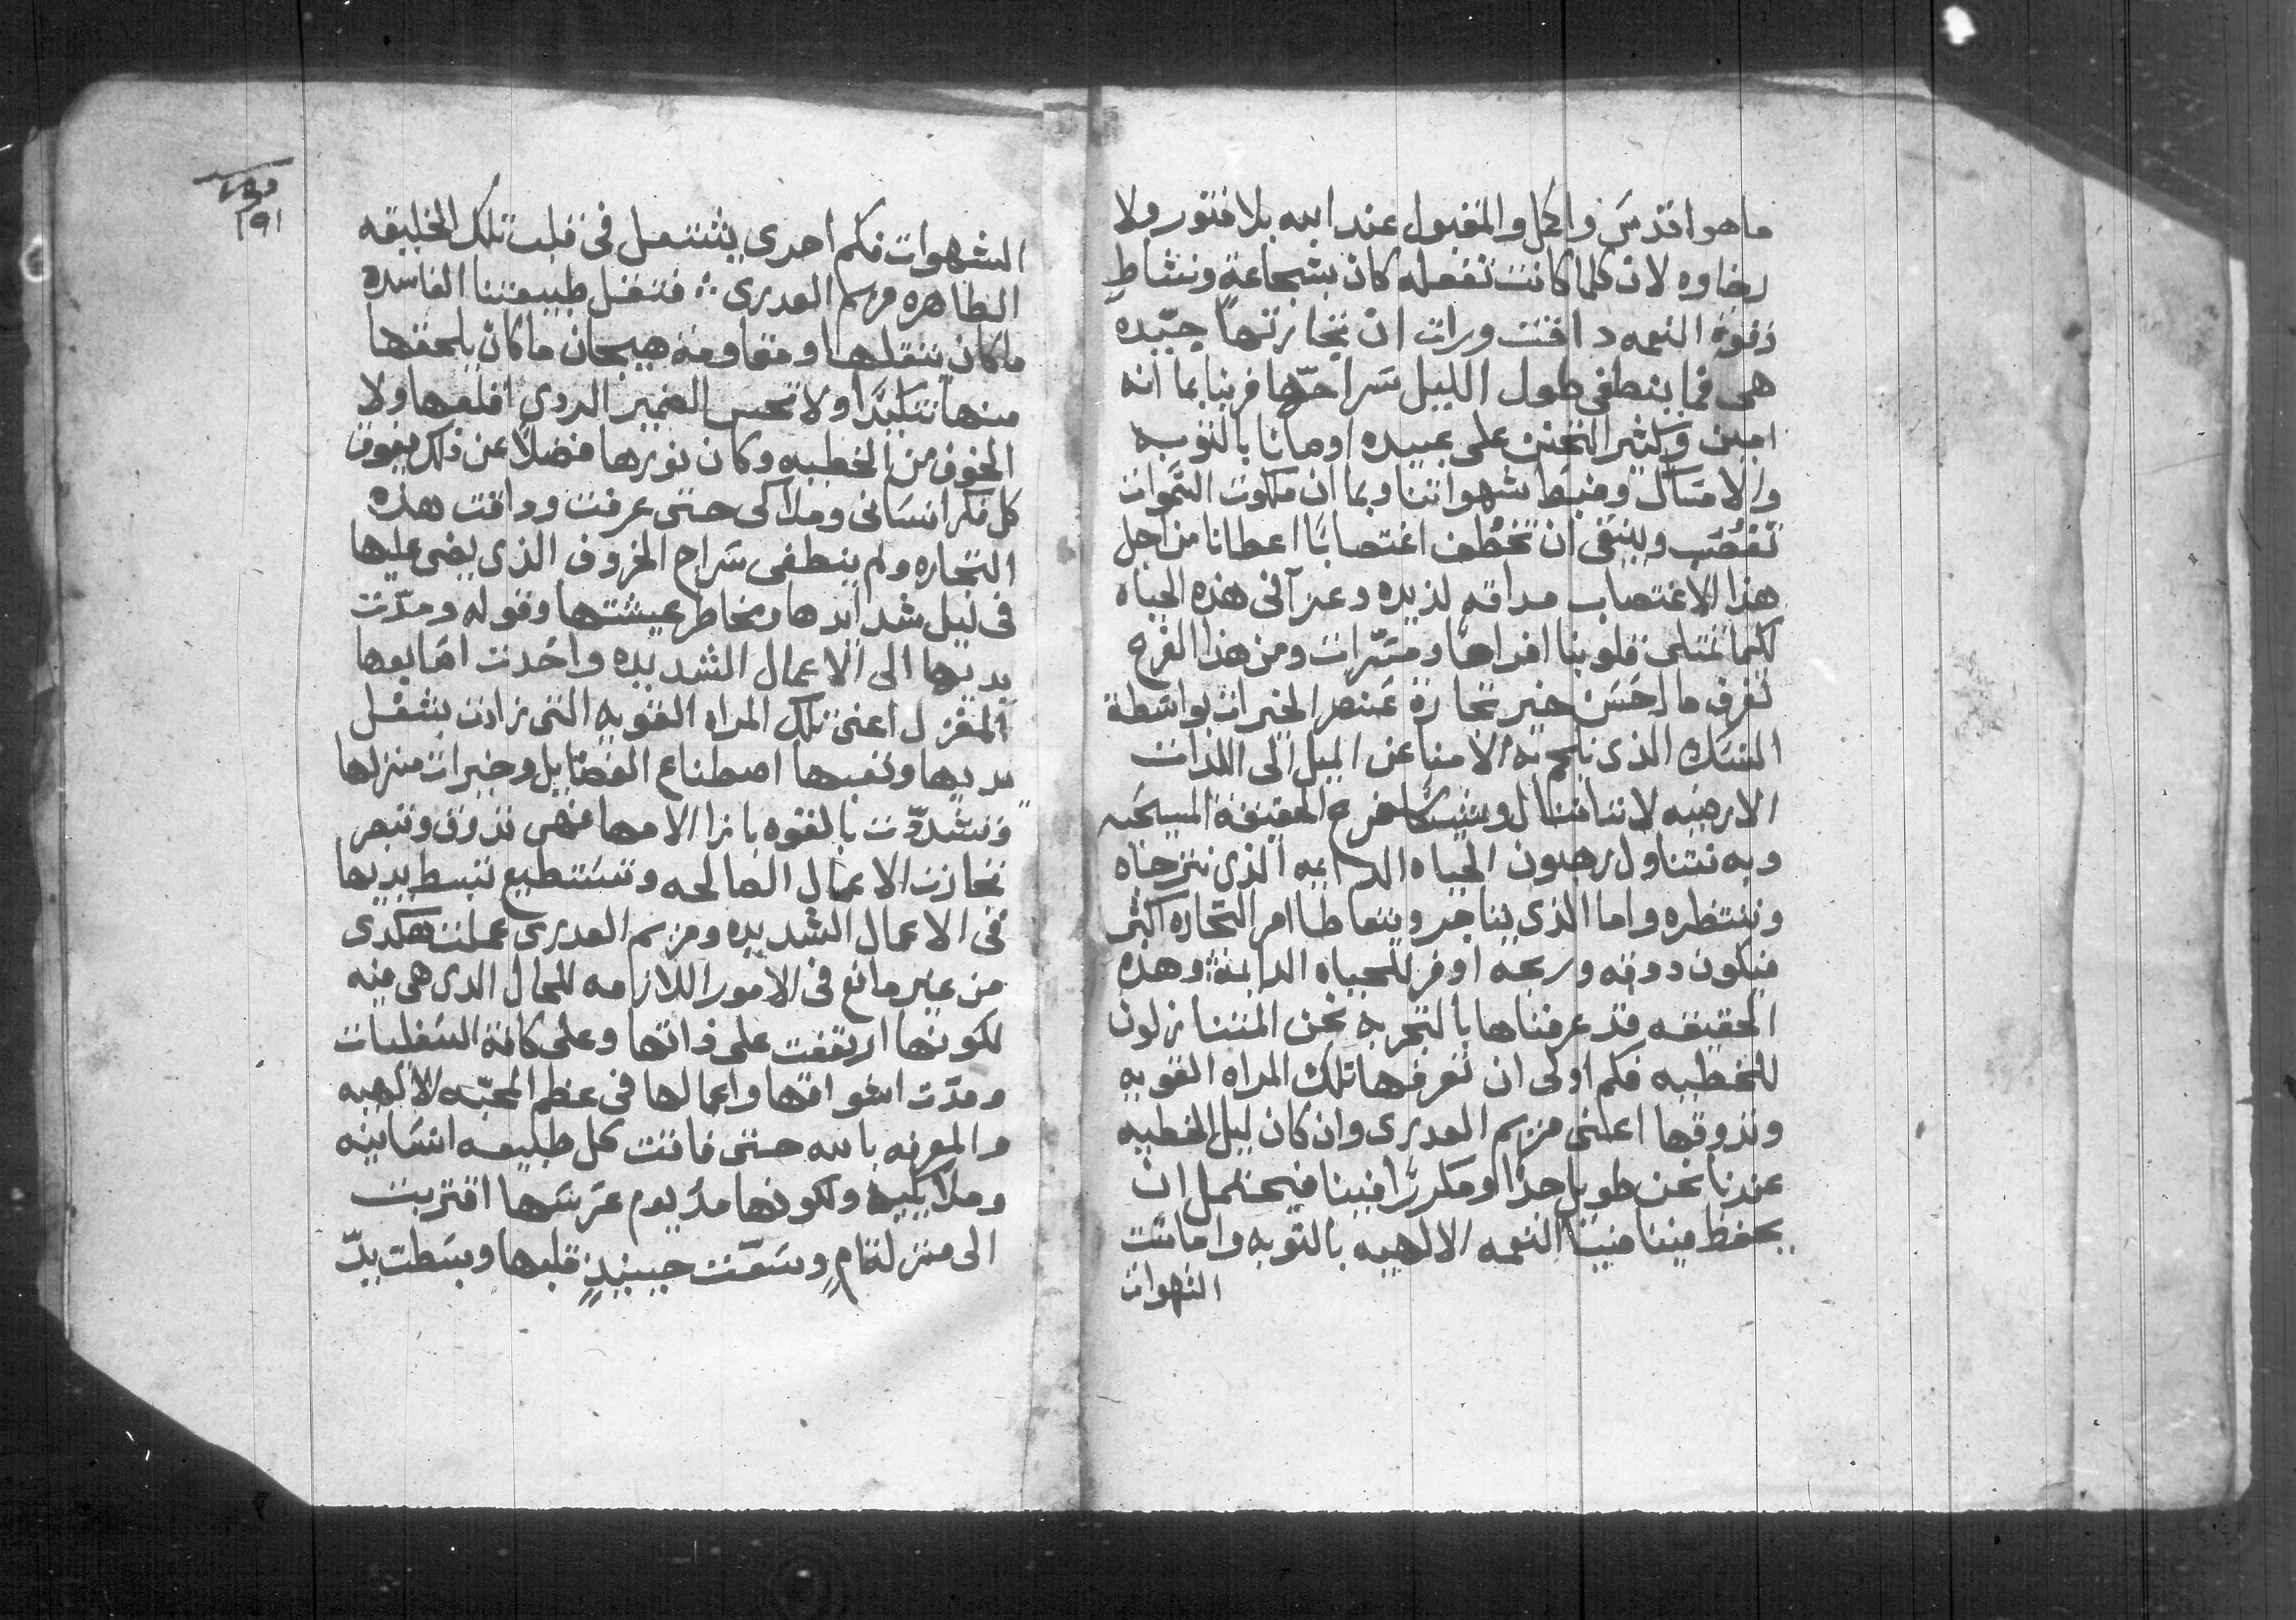 ما هو اقدس واكمل والمقبول عند الله بلا فتور ولا
رخاوه لان كلما كانت تفعله كان بشجاعةٍ ونشاطٍ
وقوة النعمه داقت ورات ان تجارتها جيّده
هى فما ينطفى طول الليل سراجها فربنا بما انه
امين وكثير التحنن على عبيده اوصانا بالتوبه
والامساك وضبط شهواتنا وبما ان ملكوت السموات
تغصُب وينبغى ان تخطُف اغتصابًا اعطانا من اجل
هذا الاغتصاب مداقه لذيده وعزآ فى هذه الحياه
لكيما تمتلى قلوبنا افراحًا ومسّرات ومن هذا الفرح
نعرف ما احسن خير تجارة عنصر الخيرات بواسطة
النسك الذى نلجم به الامنا عن الميل الى اللذات
الارضيه لاننا ننال وشيكًا فرح الحقيقة المسيحيه
وبه نتناول رهبون الحياه الدايمه الذى نترجاه
وننتظره واما الذى يتاجر ويتعاطا امر التجاره اكثر
فيكون دوقه وربحه اوفر للحياه الدايمة وهذه
الحقيقه قد عرفناها بالتجربه نحن المتنازلون
للخطيه فكم اولى ان تعرفها تلك المراه القويه
وتذوقها اعنى مريم العدرى وان كان ليل الخطيه
عندنا نحن طويل جدًا ومكررًا فينا فيحتمل ان
يحفظ فيننا النعمه الالهيه بالتوبه واماتت
الشهوات
الشهوات فكم احرى يشتعل فى قلب تلك الخليقه
الطاهره مريم العدرى فثقل طبيعتنا الفاسده
ما كان يثقلها ومقاومة هيجان ما كان يلحقها
منها تلبدًا ولا نحس الضمير الردى اقلقها ولا
الخوف من الخطيه وكان نورها فضلًا عن ذلك يفوق
كل فكر انسانى وملاكى حتى عرفت وداقت هذه
التجاره ولم ينطفى سراج الخروف الذى يضى عليها
فى ليل شدايدها ومخاطر عيشتها وقوله ومدّت
يديها الى الاعمال الشديده واخدت اصابعها
المغزل اعنى تلك المراه القويه التى زادت بشغل
يديها وتعبها اصطناع الفضايل وخيرات منزلها
وتشدّدت بالقوه بازا الامها فهى تذوق وتبصر
تجارت الاعمال الصالحه وتستطيع تبسط يديها
فى الاعمال الشديده ومريم العدرى عملت هكدى
من غير مانع فى الامور اللازمه للحال الدى هى فيه
لكونها ارتفعت على ذاتها وعلى كافة السفليات
ومدّت اشواقها واعمالها فى عظم المحبّه الالهيه
والمعرفه بالله حتى فاقت كل طبيعه انسانيه
وملايكيه ولكونها مذ يوم عربسها اقتربت
الى منزلة ام وسعّت حينيذٍ قلبها وبسطت يدّ